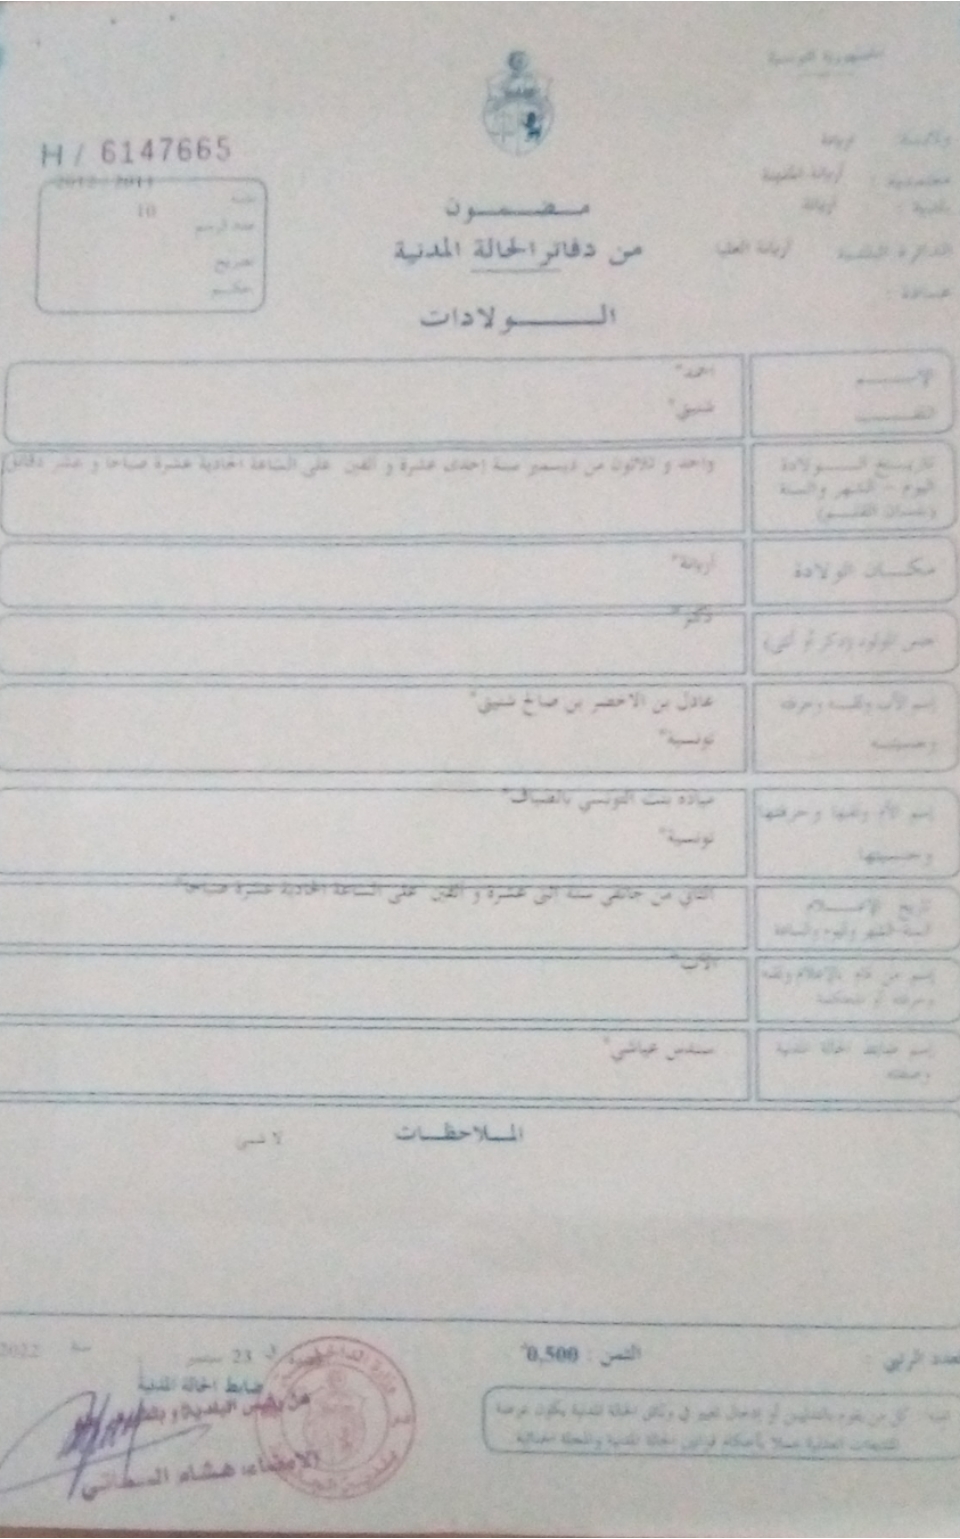 الجمهورية التونسية
ولاية : أريانة
معتمدية : أريانة المدينة
بلدية : أريانة
الدائرة البلدية أريانة العليا
عمادة :
H / 6147665
2012 / 2011
سنة
عدد الرسم 10
تصريح
حكم
مضمون
من دفاتر الحالة المدنية
الولادات
الإسم احمد*
اللقب شنيق*
تاريخ الولادة واحد و ثلاثون من ديسمبر سنة إحدى عشرة و ألفين على الساعة الحادية عشرة صباحا و عشر دقائق
اليوم - الشهر والسنة
(بلسان القلم)
مكان الولادة أريانة*
جنس المولود (ذكر أو أنثى) ذكر*
إسم الأب ولقبه وحرفته عادل بن الاخضر بن صالح شنيق*
وجنسيته تونسية*
إسم الأم ولقبها وحرفتها ميادة بنت التونسي بالضياف*
وجنسيتها تونسية*
تاريخ الإعلام الثاني من جانفي سنة اثنى عشرة و ألفين على الساعة الحادية عشرة صباحا*
السنة الشهر واليوم والساعة
إسم من قام بالإعلام ولقبه الأب*
وحرفته أو المحكمة
إسم ضابط الحالة المدنية سندس عياشي*
وصفته
الملاحظات لا شيء
العدد الرتبي :
الثمن : 0,500*
في 23 سبتمبر سنة 2022
ضابط الحالة المدنية
عن رئيس البلدية و
الإمضاء: هشام
تنبيه كل من يقوم بالتدليس أو إدخال تغيير في وثائق الحالة المدنية يكون عرضة
للتتبعات العدلية عملا بأحكام قوانين الحالة المدنية والمجلة الجنائية